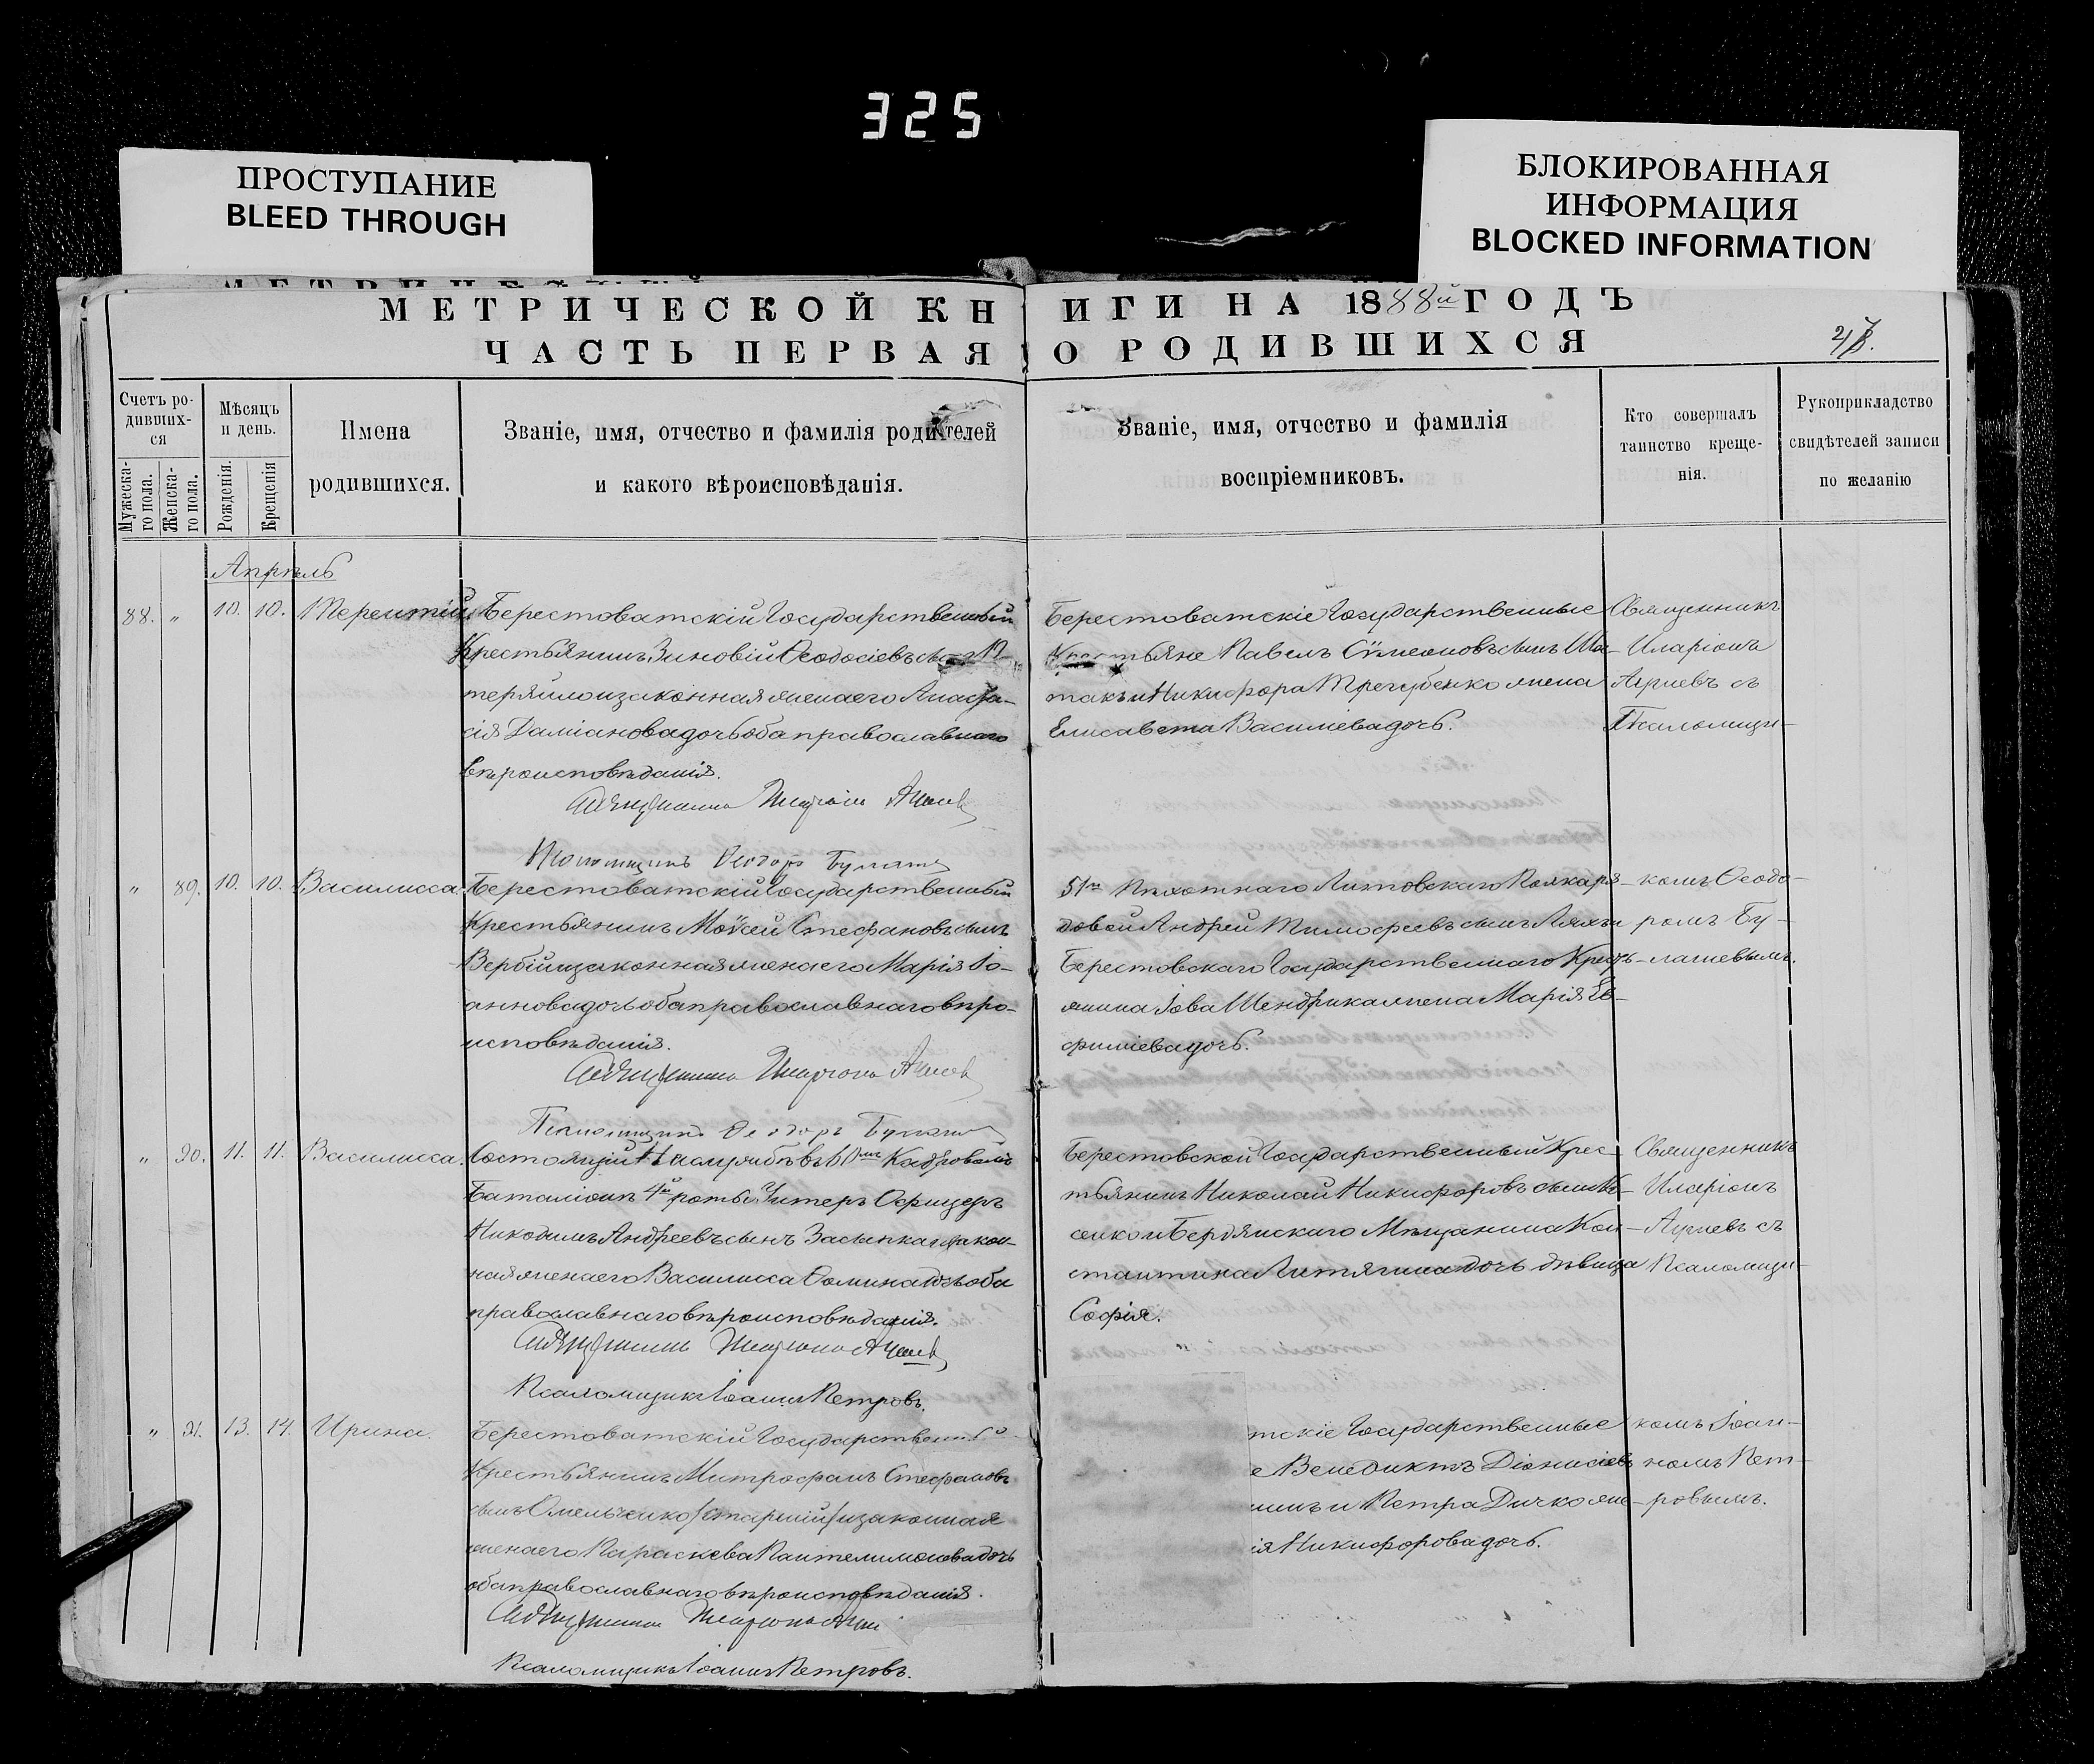 325
ПРОСТУПАНИЕ
BLEED THROUGH
БЛОКИРОВАННАЯ
ИНФОРМАЦИЯ
BLOCKED INFORMATION
МЕТРИЧЕСКОЙ КНИГИ НА 1888й ГОДЪ
ЧАСТЬ ПЕРВАЯ О РОДИВШИХСЯ
Счетъ ро-
дивших-
ся
Мужеска-
го пола.
Женска-
го пола.
Мѣсяцъ
и день.
Рожденія.
Крещенія
Имена
родившихся.
Званіе, имя, отчество и фамилія родителей
и какого вѣроисповѣданія.
Званіе, имя, отчество и фамилія
воспріемниковъ.
Кто совершалъ
таинство креще-
нія.
Рукоприкладство
свидѣтелей записи
по желанію
Апрѣль
88. " 10. 10. Терентій
Берестоватскій Государственный
Крестьянинъ Зиновій Ѳеодосіевъ сынъ
и законная жена его Анаста-
сія Даміанова дочь оба православнаго
вѣроисповѣданія.
Священникъ Иларіонъ
Псаломщикъ Ѳеодоръ
Берестоватскіе Государственные
Крестьяне Павелъ Сѵмеоновъ сынъ
и Никифора Трегубенко жена
Елисавета Василіева дочь.
Священникъ
Иларіонъ
съ
Псаломщи-
" 89. 10. 10. Василисса.
Берестоватскій Государственный
Крестьянинъ Моѵсей Стефановъ сынъ
Вербій и законная жена его Марія Іо-
аннова дочь оба православнаго вѣро-
исповѣданія.
Священникъ Иларіонъ
Псаломщикъ Ѳеодоръ
51го Пѣхотнаго Литовскаго Полка ря-
довой Андрей Тимофеевъ сынъ Ляхъ и
Берестовскаго Государственнаго Кресть-
янина Іова Шендрика жена Марія Ев-
фиміева дочь.
комъ Ѳеодо-
ромъ Бу-
" 90. 11. 11. Василисса.
Состоящій въ Кадровомъ
Баталіонѣ 4й роты Унтеръ Офицеръ
Никодимъ Андреевъ сынъ Засыпка и закон-
ная жена его Василисса Ѳомина дочь оба
православнаго вѣроисповѣданія.
Священникъ Иларіонъ
Псаломщикъ Іоаннъ Петровъ.
Берестовской Государственный Крес-
тьянинъ Николай Никифоровъ сынъ
и Бердянскаго Мѣщанина Кон-
стантина Литягина дочь дѣвица
Софія.
Священникъ
Иларіонъ
съ
Псаломщи-
" 91. 13. 14. Ирина.
Берестоватскій Государственный
Крестьянинъ Митрофанъ Стефановъ
сынъ Омельченко /старшій/ и законная
жена его Параскева Пантелимонова дочь
оба православнаго вѣроисповѣданія.
Священникъ Иларіонъ
Псаломщикъ Іоаннъ Петровъ.
тскіе Государственные
е Венедиктъ Діонисіевъ
и Петра Дичко же-
ія Никифорова дочь.
комъ Іоан-
номъ Пет-
ровымъ.